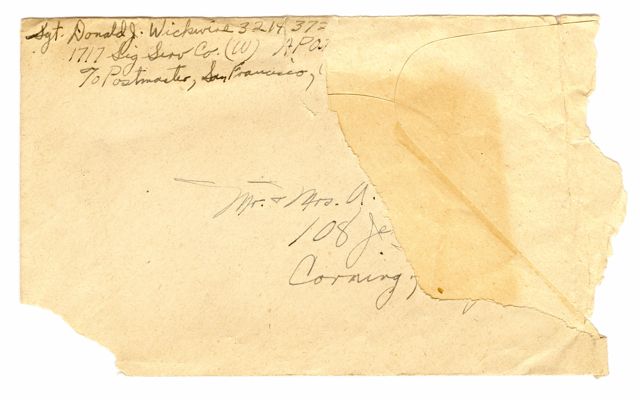 Sgt. Donald J. Wickwire 3214 372
1717 Sig Serv Co. (W) APO
℅ Postmaster, San Francisco,
Mr. & Mrs. A.
108 Je
Corning,